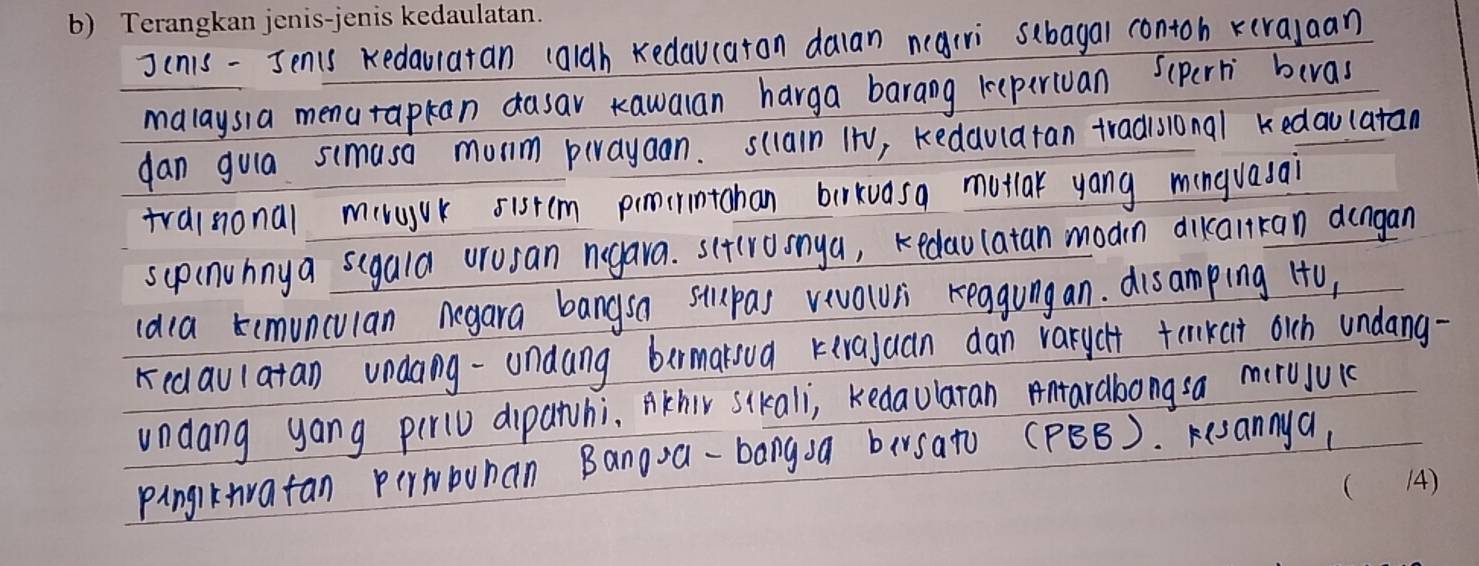 b) Terangkan jenis-jenis kedaulatan.
Jenis - Jenis kedaulatan ialah kedaulatan dalan negeri sebagai contoh kerajaan
malaysia menetapkan dasar kawalan harga barang keperluan seperti beras
dan gula semasa musim perayaan. selain itu, kedaulatan tradisional kedaulatan
traisional merujuk sistem pemerintahan berkuasa mutlak yang menguasai
sepenuhnya segala urusan negara. seterusnya, kedaulatan moden dikaitkan dengan
idea kemunculan negara bangsa selepas revolusi keagungan. disamping itu,
kedaulatan undang-undang bermaksud kerajaan dan rakyat terikat oleh undang-
undang yang perlu dipatuhi. Akhir sekali, kedaulatan Antarabangsa merujuk
pengiktiratan Pertubuhan Bangsa-bangsa bersatu (PBB). kesannya,
( /4)